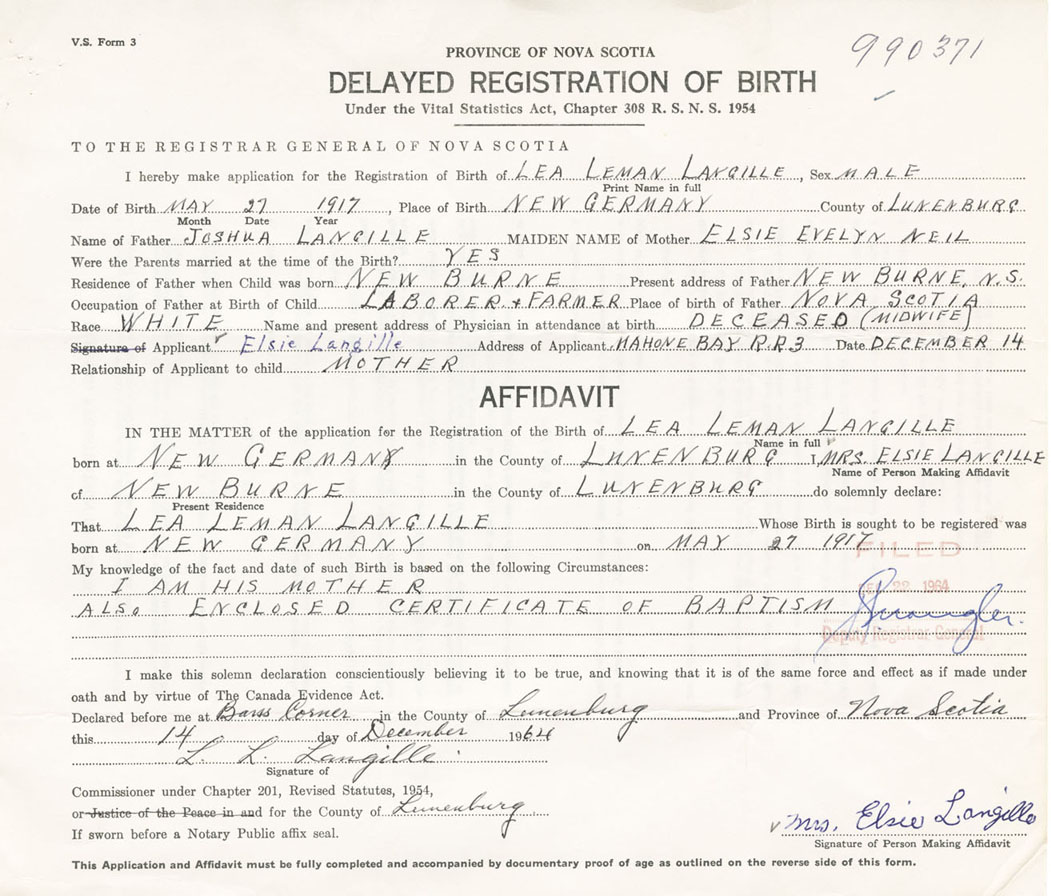 V.S. Form 3
990371
PROVINCE OF NOVA SCOTIA
DELAYED REGISTRATION OF BIRTH
Under the Vital Statistics Act, Chapter 308 R. S. N. S. 1954
TO THE REGISTRAR GENERAL OF NOVA SCOTIA
I hereby make application for the Registration of Birth of LEA LEMAN LANGILLE, Sex MALE
Print Name in full
Date of Birth MAY 27 1917, Place of Birth NEW GERMANY County of LUNENBURG
Month Date Year
Name of Father JOSHUA LANGILLE MAIDEN NAME of Mother ELSIE EVELYN NEIL
Were the Parents married at the time of the Birth? YES
Residence of Father when Child was born NEW BURNE Present address of Father NEW BURNE, N.S.
Occupation of Father at Birth of Child LABORER + FARMER Place of birth of Father NOVA SCOTIA
Race WHITE Name and present address of Physician in attendance at birth DECEASED (MIDWIFE)
Signature of Applicant Elsie Langille Address of Applicant MAHONE BAY R.R.3 Date DECEMBER 14
Relationship of Applicant to child MOTHER
AFFIDAVIT
IN THE MATTER of the application for the Registration of the Birth of LEA LEMAN LANGILLE
Name in full
born at NEW GERMANY in the County of LUNENBURG I, MRS. ELSIE LANGILLE
Name of Person Making Affidavit
of NEW BURNE in the County of LUNENBURG do solemnly declare:
Present Residence
That LEA LEMAN LANGILLE Whose Birth is sought to be registered was
born at NEW GERMANY on MAY 27 1917
FILED
My knowledge of the fact and date of such Birth is based on the following Circumstances:
I AM HIS MOTHER
22 1964
ALSO ENCLOSED CERTIFICATE OF BAPTISM
Deputy Registrar General
I make this solemn declaration conscientiously believing it to be true, and knowing that it is of the same force and effect as if made under
oath and by virtue of The Canada Evidence Act.
Declared before me at Barss Corner in the County of Lunenburg and Province of Nova Scotia
this 14 day of December 1964
L. L. Langille
Signature of
Commissioner under Chapter 201, Revised Statutes, 1954,
or Justice of the Peace in and for the County of Lunenburg
If sworn before a Notary Public affix seal.
Mrs. Elsie Langille
Signature of Person Making Affidavit
This Application and Affidavit must be fully completed and accompanied by documentary proof of age as outlined on the reverse side of this form.